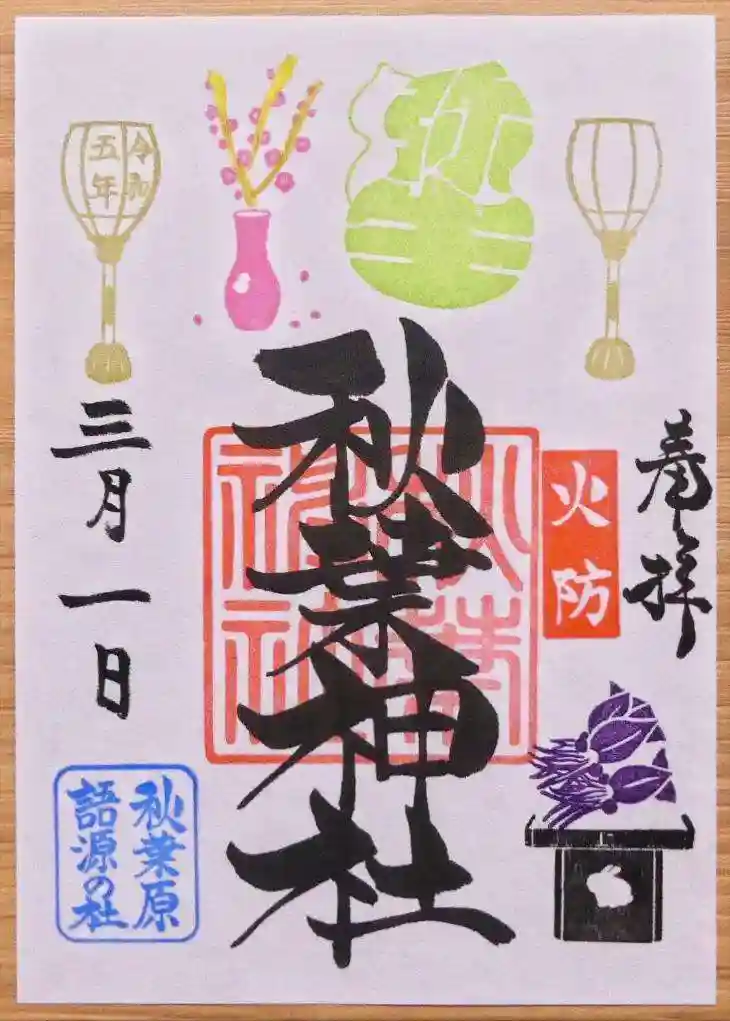 奉拝
火防
秋葉神社
秋葉神社
令和
五年
三月一日
秋葉原
語源の社